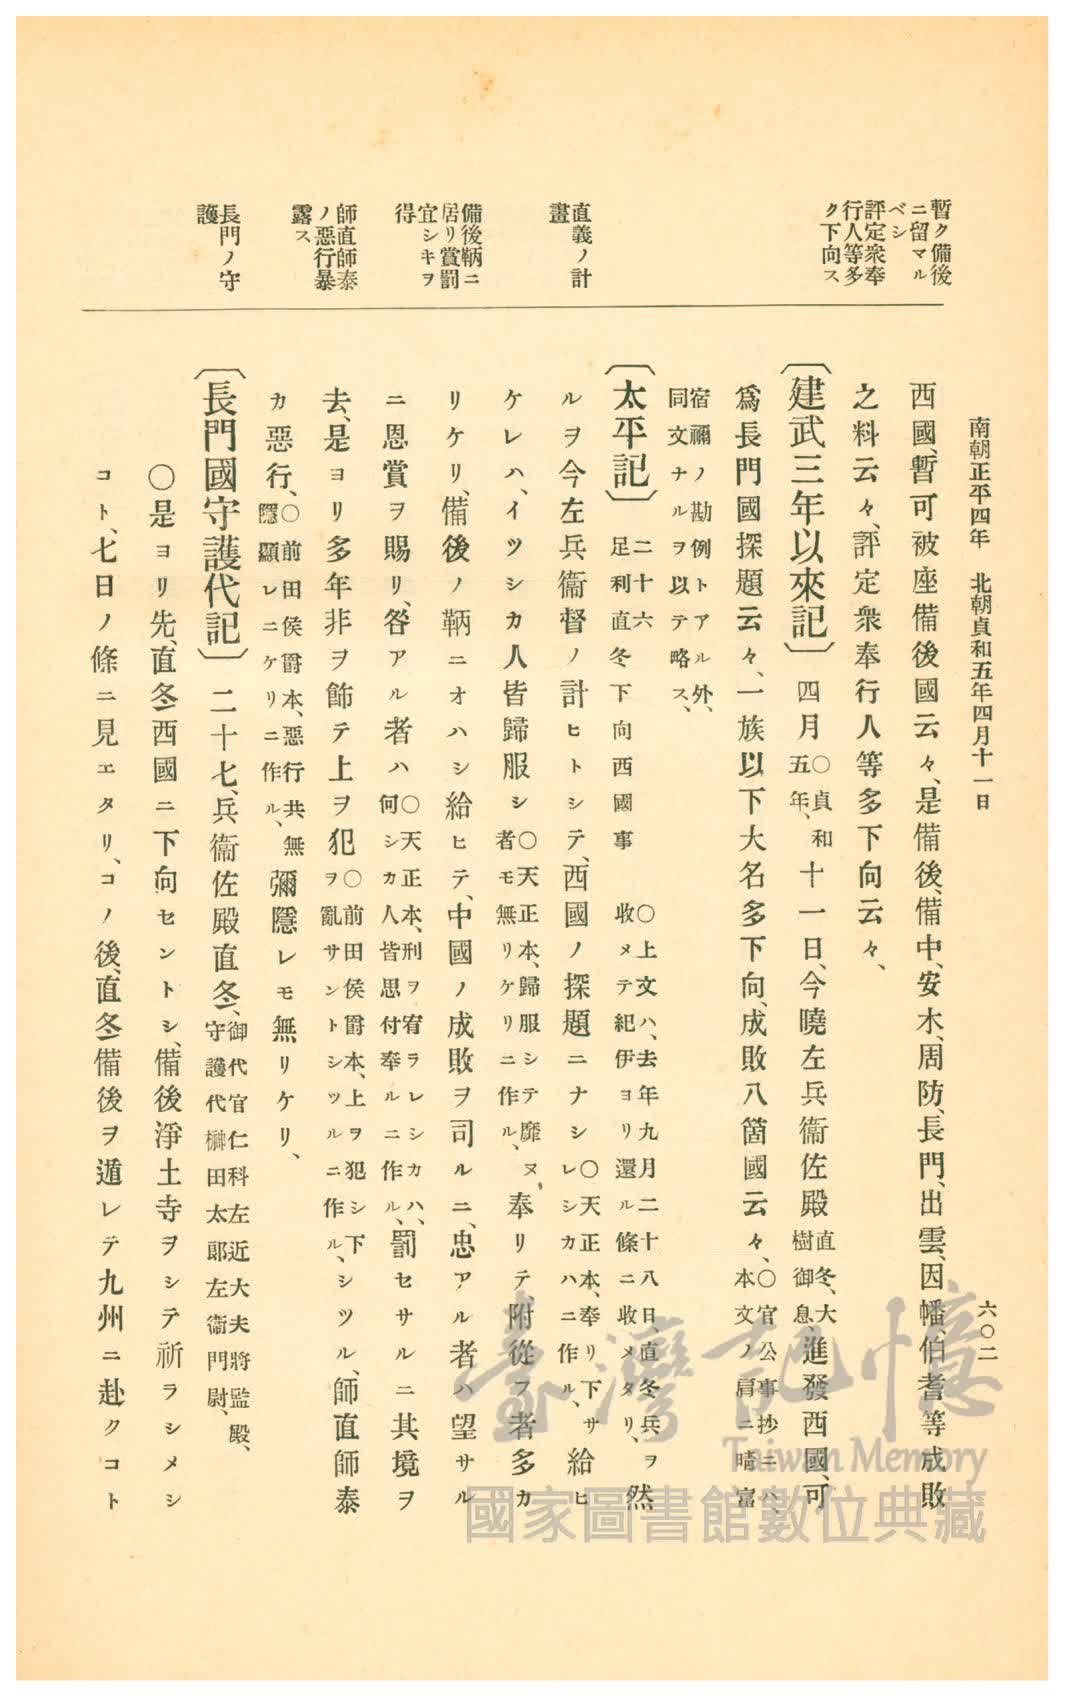 南朝正平四年　北朝貞和五年四月十一日
六〇二
暫ク備後
ニ留マル
ベシ
評定衆奉
行人等多
ク下向ス
直義ノ計
畫
備後鞆ニ
居リ賞罰
宜シキヲ
得
師直師泰
ノ惡行暴
露ス
長門ノ守
護
西國、暫可被座備後國云々、是備後、備中、安木、周防、長門、出雲、因幡、伯耆等成敗
之料云々、評定衆奉行人等多下向云々、
〔建武三年以來記〕四月〇貞和五年、十一日、今曉左兵衞佐殿直冬、大樹御息進發西國、可
爲長門國探題云々、一族以下大名多下向、成敗八箇國云々、〇官公事抄ニハ、本文ノ肩ニ晴富
宿禰ノ勘例トアル外、
同文ナルヲ以テ略ス、
〔太平記〕二十六足利直冬下向西國事　〇上文ハ、去年九月二十八日、直冬兵ヲ收メテ紀伊ヨリ還ル條ニ收メタリ、然
ルヲ今左兵衞督ノ計ヒトシテ、西國ノ探題ニナシ〇天正本、奉リ下サレシカハニ作ル、給ヒ
ケレハ、イツシカ人皆歸服シ〇天正本、歸服シテ靡ヌ者モ無リケリニ作ル、奉リテ、附從フ者多カ
リケリ、備後ノ鞆ニオハシ給ヒテ、中國ノ成敗ヲ司ルニ、忠アル者ハ望サル
ニ恩賞ヲ賜リ、咎アル者ハ〇天正本、刑ヲ宥ラレシカハ、何シカ人皆思付奉ルニ作ル、罰セサルニ其境ヲ
去、是ヨリ多年非ヲ飾テ上ヲ犯〇前田侯爵本、上ヲ犯シ下ヲ亂サントシツルニ作ル、シツル、師直師泰
カ惡行、〇前田侯爵本、惡行共無隱顯レニケリニ作ル、彌隱レモ無リケリ、
〔長門國守護代記〕二十七、兵衞佐殿直冬、御代官仁科左近大夫將監殿、守護代榊田太郞左衞門尉、
〇是ヨリ先、直冬西國ニ下向セントシ、備後淨土寺ヲシテ祈ラシメシ
コト、七日ノ條ニ見エタリ、コノ後、直冬備後ヲ遁レテ九州ニ赴クコト
臺灣記憶
Taiwan Memory
國家圖書館數位典藏